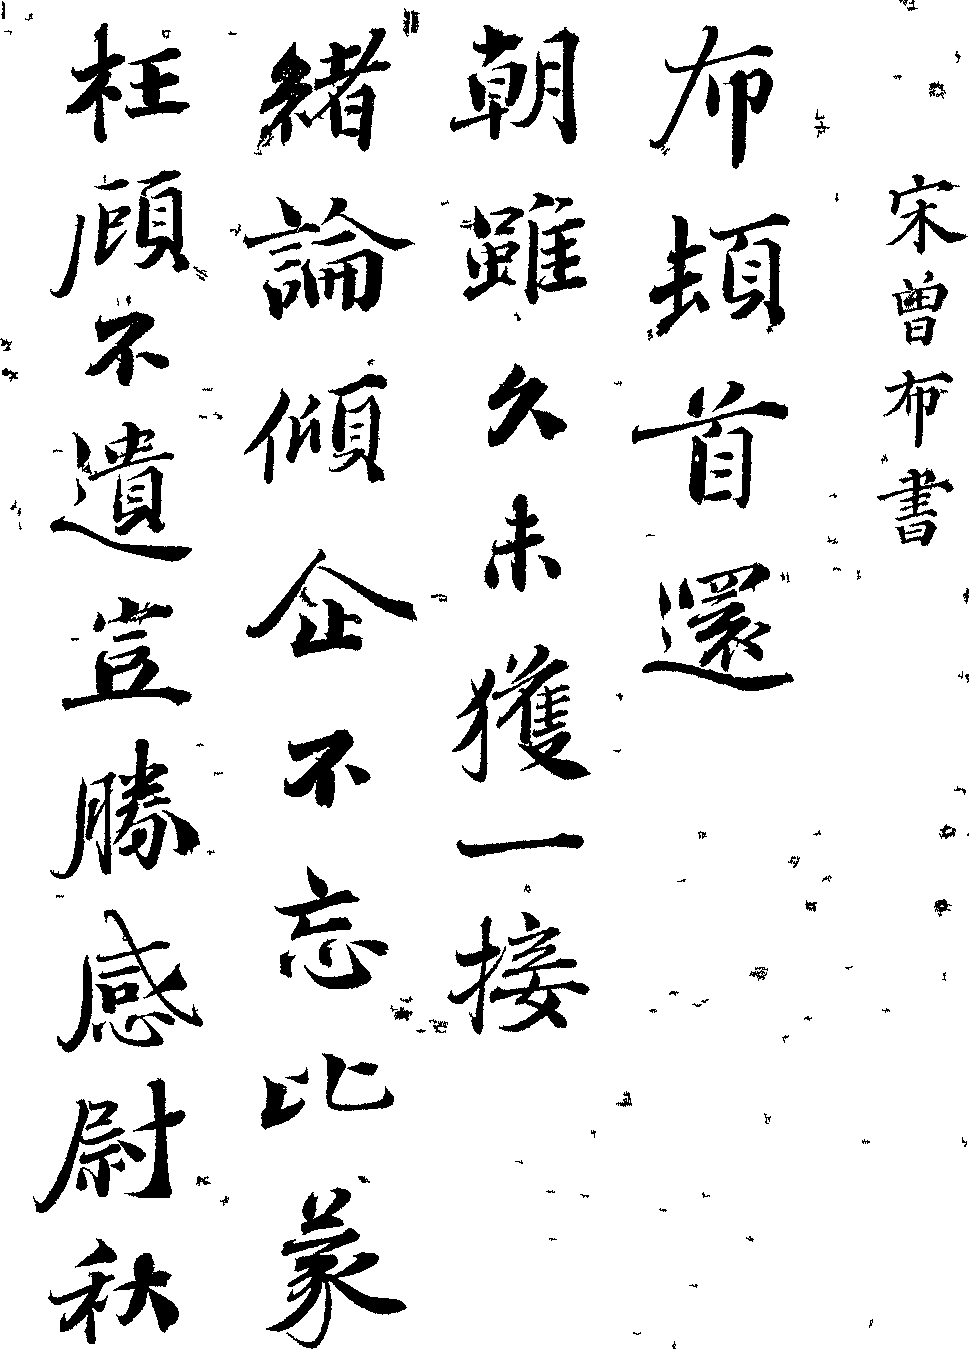 宋曾布書
布頓首還
朝雖久未獲一接
緒論傾企不忘比蒙
枉顧不遺豈勝感尉秋